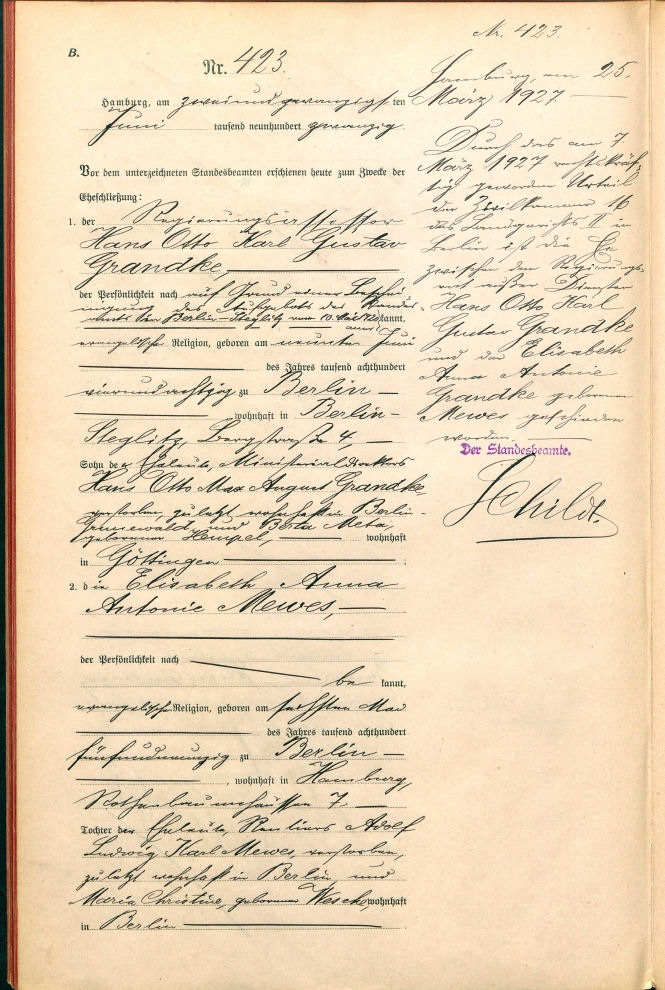 B.
Nr. 423.
Hamburg, am zweiundzwanzigsten
Juni tausend neunhundert zwanzig.
Vor dem unterzeichneten Standesbeamten erschienen heute zum Zwecke der
Eheschließung:
1. der Regierungsassessor
Hans Otto Karl Gustav
Grandke,
der Persönlichkeit nach auf Grund einer Beschei-
nigung des Aufgebots des Standes-
amts in Berlin-Steglitz vom 10. Mai kannt,
evangelischer Religion, geboren am neunten Juni
des Jahres tausend achthundert
vierundachtzig zu Berlin
, wohnhaft in Berlin-
Steglitz, Bergstraße 4,
Sohn der Eheleute, Ministerialdirektors
Hans Otto Max August Grandke,
verstorben, zuletzt wohnhaft in Berlin-
Grunewald und Berta Meta,
geborenen Hempel, wohnhaft
in Göttingen
2. die Elisabeth Anna
Antonie Mewes,
der Persönlichkeit nach
be kannt,
evangelischer Religion, geboren am sechsten Mai
des Jahres tausend achthundert
fünfundneunzig zu Berlin
, wohnhaft in Hamburg,
Rothenbaumchaussee 7,
Tochter der Eheleute, Rentiers Adolf
Ludwig Karl Mewes, verstorben,
zuletzt wohnhaft in Berlin und
Maria Christine, geborenen wohnhaft
in Berlin
Nr. 423.
Hamburg, am 25.
März 1927
Durch das am 7
März 1927 rechtskräf-
tig geworden Urteil
der Zivilkammer 16
des Landgerichts II in
Berlin ist die Ehe
zwischen dem Regierungs-
rat außer Diensten
Hans Otto Karl
Gustav Grandke
und der Elisabeth
Anna Antonie
Grandke geborenen
Mewes geschieden
worden.
Der Standesbeamte.
Schildt.